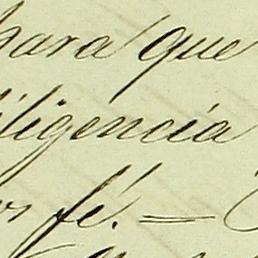 para que
diligencia
fé. =